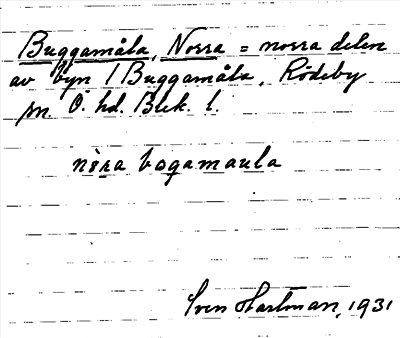 Buggamåla, Norra = norra delen
av byn 1 Buggamåla, Rödeby
sn. Ö. hd. Blek. l.
nòra bogamaula
Sven Hartman, 1931